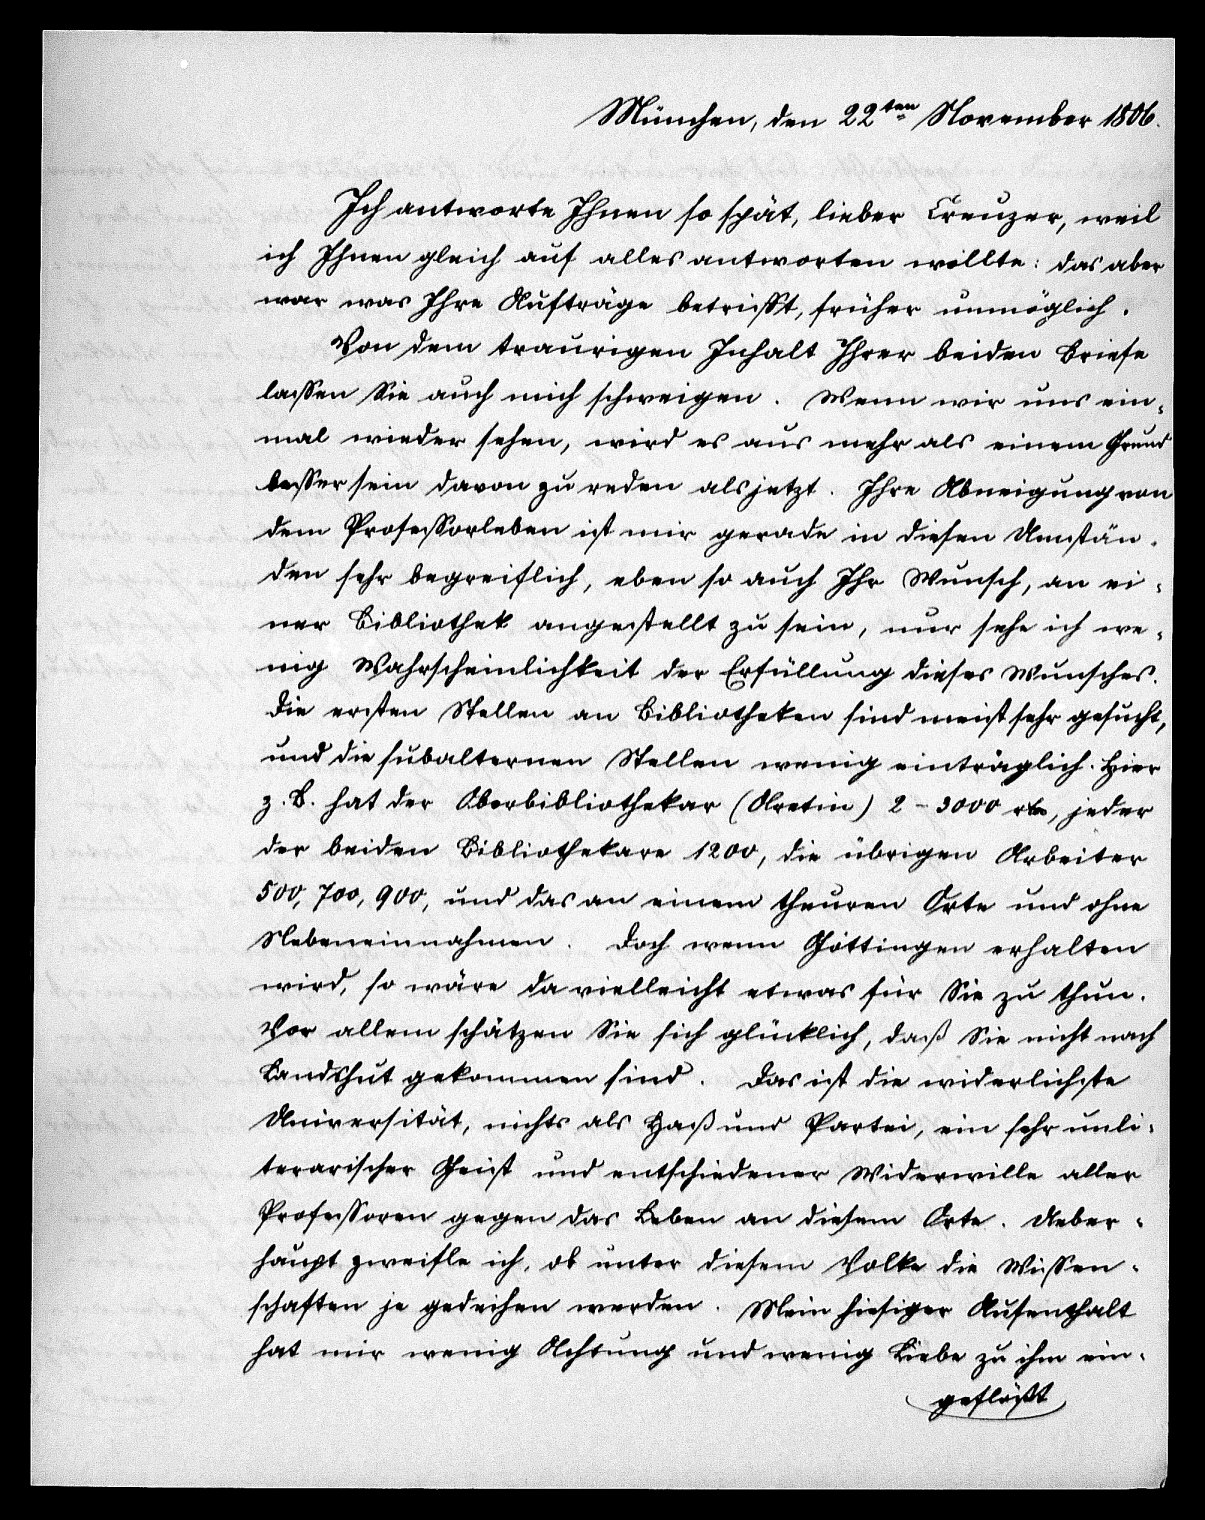 München, den 22ten November 1806.
Ich antworte Ihnen so spät, lieber Creuzer, weil
ich Ihnen gleich auf alles antworten wollte: das aber
war was Ihre Aufträge betrifft, früher unmöglich.
Von dem traurigen Inhalt Ihrer beiden Briefe
lassen Sie auch mich schweigen. Wenn wir uns ein-
mal wieder sehen, wird es aus mehr als einem Grund
besser sein davon zu reden als jetzt. Ihre Abneigung von
dem Professorleben ist mir gerade in diesen Umstän-
den sehr begreiflich, eben so auch Ihr Wunsch, an ei-
ner Bibliothek angestellt zu sein, nur sehe ich we-
nig Wahrscheinlichkeit der Erfüllung dieses Wunsches.
Die ersten Stellen an Bibliotheken sind meist sehr gesucht,
und die subalternen Stellen wenig einträglich. Hier
z. B. hat der Oberbibliothekar (Aretin) 2-3000 , jeder
der beiden Bibliothekare 1200, die übrigen Arbeiter
500, 700, 900, und das an einem theuren Orte und ohne
Nebeneinnahmen. Doch wenn Göttingen erhalten
wird, so wäre da vielleicht etwas für Sie zu thun.
Vor allem schätzen Sie sich glücklich, daß Sie nicht nach
Landshut gekommen sind. Das ist die widerlichste
Universität, nichts als Haß und Partei, ein sehr unli-
terarischer Geist und entschiedener Widerwille aller
Professoren gegen das Leben an diesem Orte. Ueber-
haupt zweifle ich, ob unter diesem Volke die Wissen-
schaften je gedeihen werden. Mein hiesiger Aufenthalt
hat mir wenig Achtung und wenig Liebe zu ihm ein-
geflößt